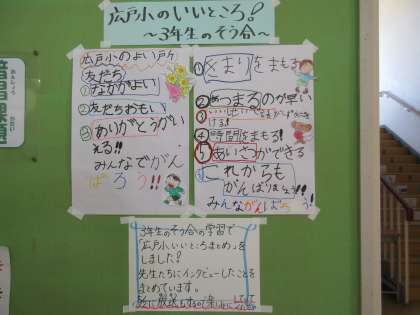 広戸小のいいところ!
~3年生のそう合~
広戸小のよい所
友だち
①なかがよい
②友だちおもい
③ありがとうがい
える!!
みんなでがん
ばろう!!
①きまりをまもる
②あつまるのが早い
③いいしせい
ける!
④時間をまもる!
⑤あいさつができる
これからも
がんばりましょう!!
みんながんばろう!
3年生のそう合の学習で
「広戸小いいところまとめ」を
しました!
先生たちにインタビューしたことを
まとめています。